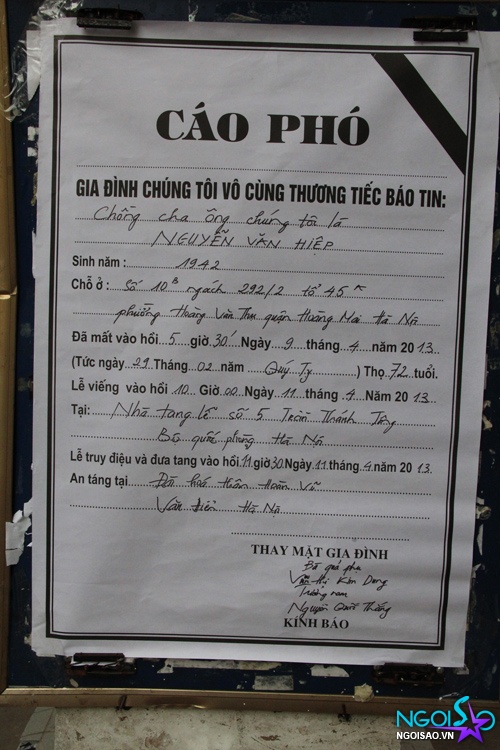 CÁO PHÓ
GIA ĐÌNH CHÚNG TÔI VÔ CÙNG THƯƠNG TIẾC BÁO TIN:
Chồng cha ông chúng tôi là
NGUYỄN VĂN HIỆP
Sinh năm : 1942
Chỗ ở : Số 10B ngách 292/2 tổ 45
phường Hoàng Văn Thụ quận Hoàng Mai Hà Nội
Đã mất vào hồi 5 giờ 30' Ngày 9 tháng 4 năm 2013
(Tức ngày 29 Tháng 02 năm Quý Tỵ ) Thọ 72 tuổi.
Lễ viếng vào hồi 10 Giờ 00 Ngày 11 tháng 4 Năm 2013
Tại: Nhà tang lễ số 5 Trần Thánh Tông
Bộ quốc phòng Hà Nội
Lễ truy điệu và đưa tang vào hồi 11 giờ 30 Ngày 11 tháng 4 năm 2013
An táng tại Đài hoá thân Hoàn Vũ
Văn Điển Hà Nội
THAY MẶT GIA ĐÌNH
Bà quả phụ
Văn Thị Kim Dung
Trưởng nam
Nguyễn Quốc Thắng
KÍNH BÁO
NGOISAO
NGOISAO.VN